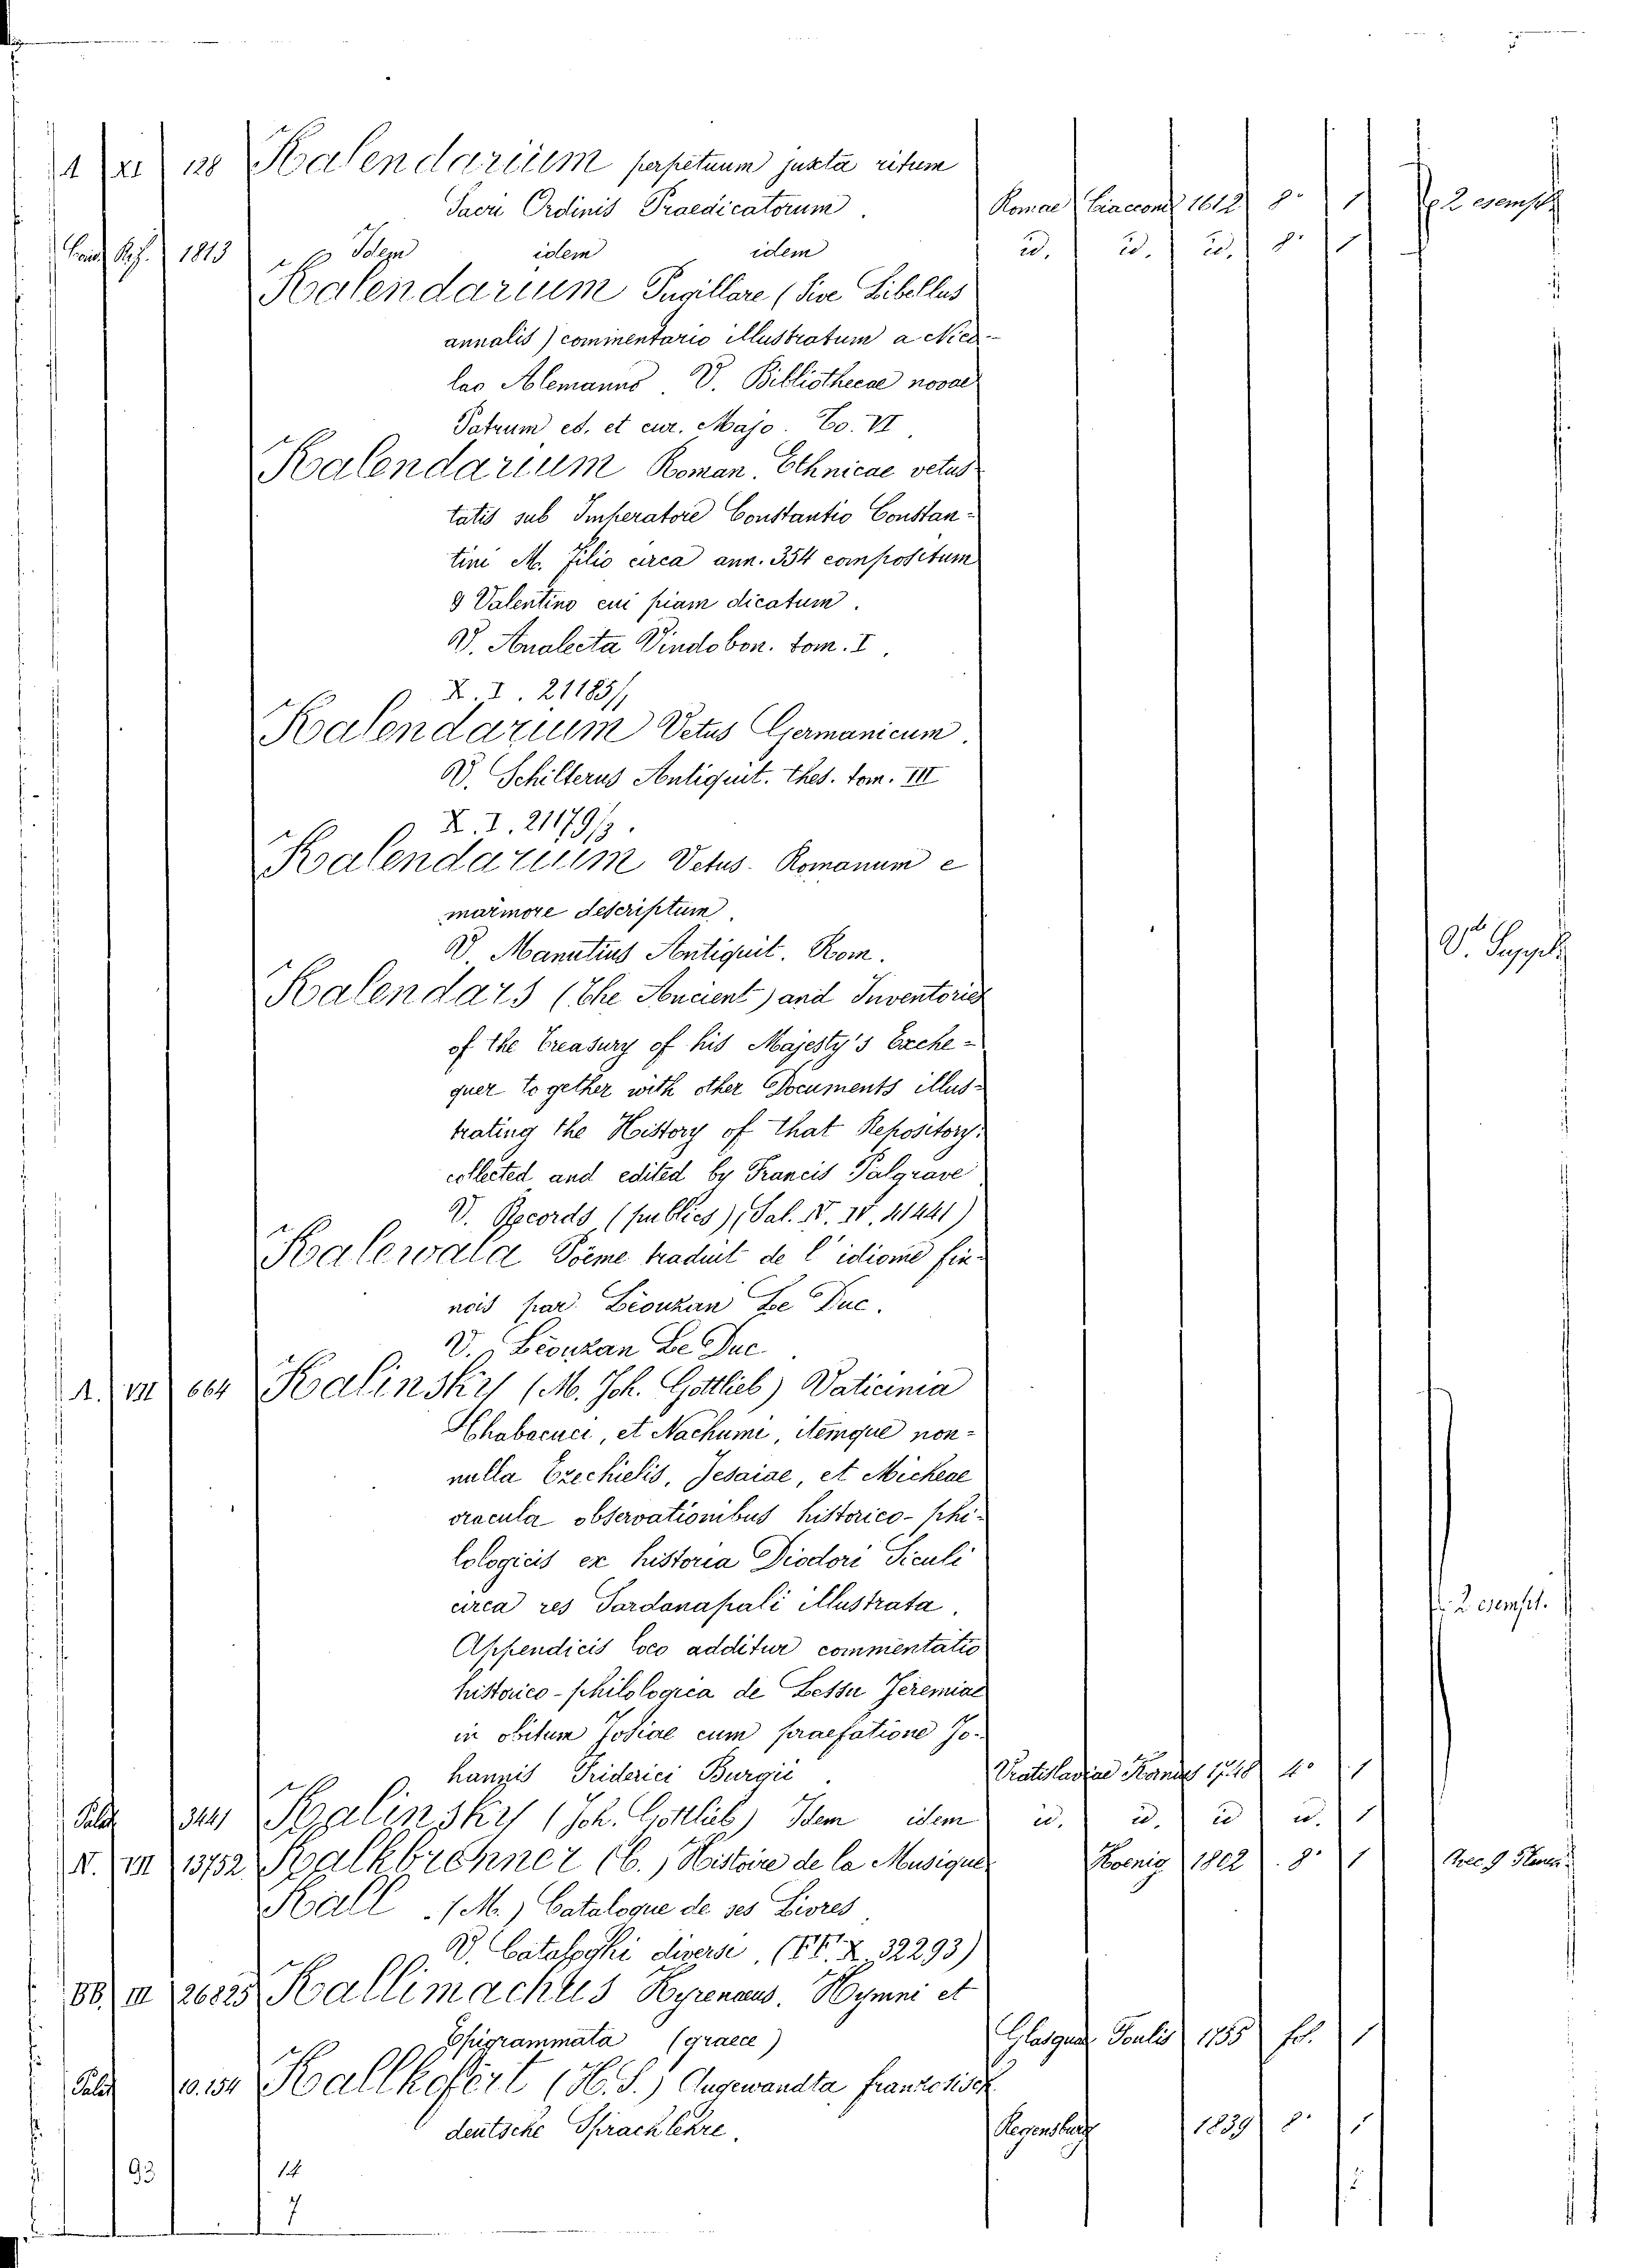 A XI 128 Kalendarium perpetuum juxta ritum
Sacri Ordinis Praedicatorum. Romae Ciaccone 1612 8° 1 2 esempl.
1813 Idem idem idem id. id. id. 8° 1
Kalendarium Pugillare (Sive Libellus
annalis) commentario illustratum a Nico-
lao Alemanno V. Bibliothecae novae
Patrum ed. et cur. Majo. To. VI.
Kalendarium Roman. Ethnicae vetus
tatis sub Imperatore Constantio Constan-
tini M. filio circa ann. 354 compositum
& Valentino cui piam dicatum.
V. Analecta Vindobon. tom. I.
X. I. 21185/1
Kalendarium Vetus Germanicum.
V. Schilterus Antiquit. thes. tom. III
X. I. 21179/3.
Kalendarium Vetus Romanum e
marmore descriptum.
V. Manutius Antiquit. Rom. V. Suppl.
Kalendars (The Ancient) and Inventories
of the Treasury of his Majesty's Exche-
quer together with other Documents illus-
trating the History of that Repository.
collected and edited by Francis Palgrave
V. Records (publics), Sal. IV. IV. 41441)
Kalewala Poëme traduit de l'idiome fin-
nois par Léouzan Le Duc.
V. Léouzan Le Duc.
A. VII 664 Kalinsky (M. Joh. Gottlieb) Vaticinia
Chabacuci, et Nachumi, itemque non-
nulla Ezechielis, Jesaiae, et Micheae
oracula observationibus historico-phi-
lologicis ex historia Diodori Siculi
circa res Sardanapali illustrata. 2 esempl.
Appendicis loco additur commentatio
historico-philologica de Lessu Jeremiae
in obitum Josiae cum praefatione Jo-
hannis Friderici Burgii. Vratislaviae 1748 4° 1
Palat 3441 Kalinsky (Joh. Gottlieb) Idem idem id. id. id id. 1
N. VIII 13752 Kalkbrenner (C.) Histoire de la Musique Koenig 1802 8° 1
Kall (M.) Catalogue de ses Livres.
V. Cataloghi diversi. (FF. X. 32293)
BB. III 26825 Kallimachus Kyrenaeus. Hymni et
Epigrammata (graece) Glasguae Foulis 1755 fol. 1
Palat 10.154 Kallhofert (H. S.) Angewandta französisch
deutsche Sprachlehre. Regensburg 1839 8° 1
93 14
7